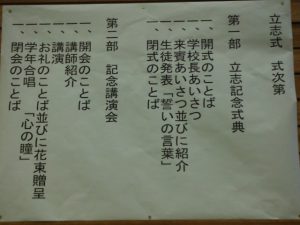 立志式 式次第
第一部 立志記念式典
一、開式のことば
一、学校長あいさつ
一、来賓あいさつ並びに紹介
一、生徒発表「誓いの言葉」
一、閉式のことば
第二部 記念講演会
一、開会のことば
一、講師紹介
一、講演
一、お礼のことば並びに花束贈呈
一、学年合唱「心の瞳」
一、閉会のことば